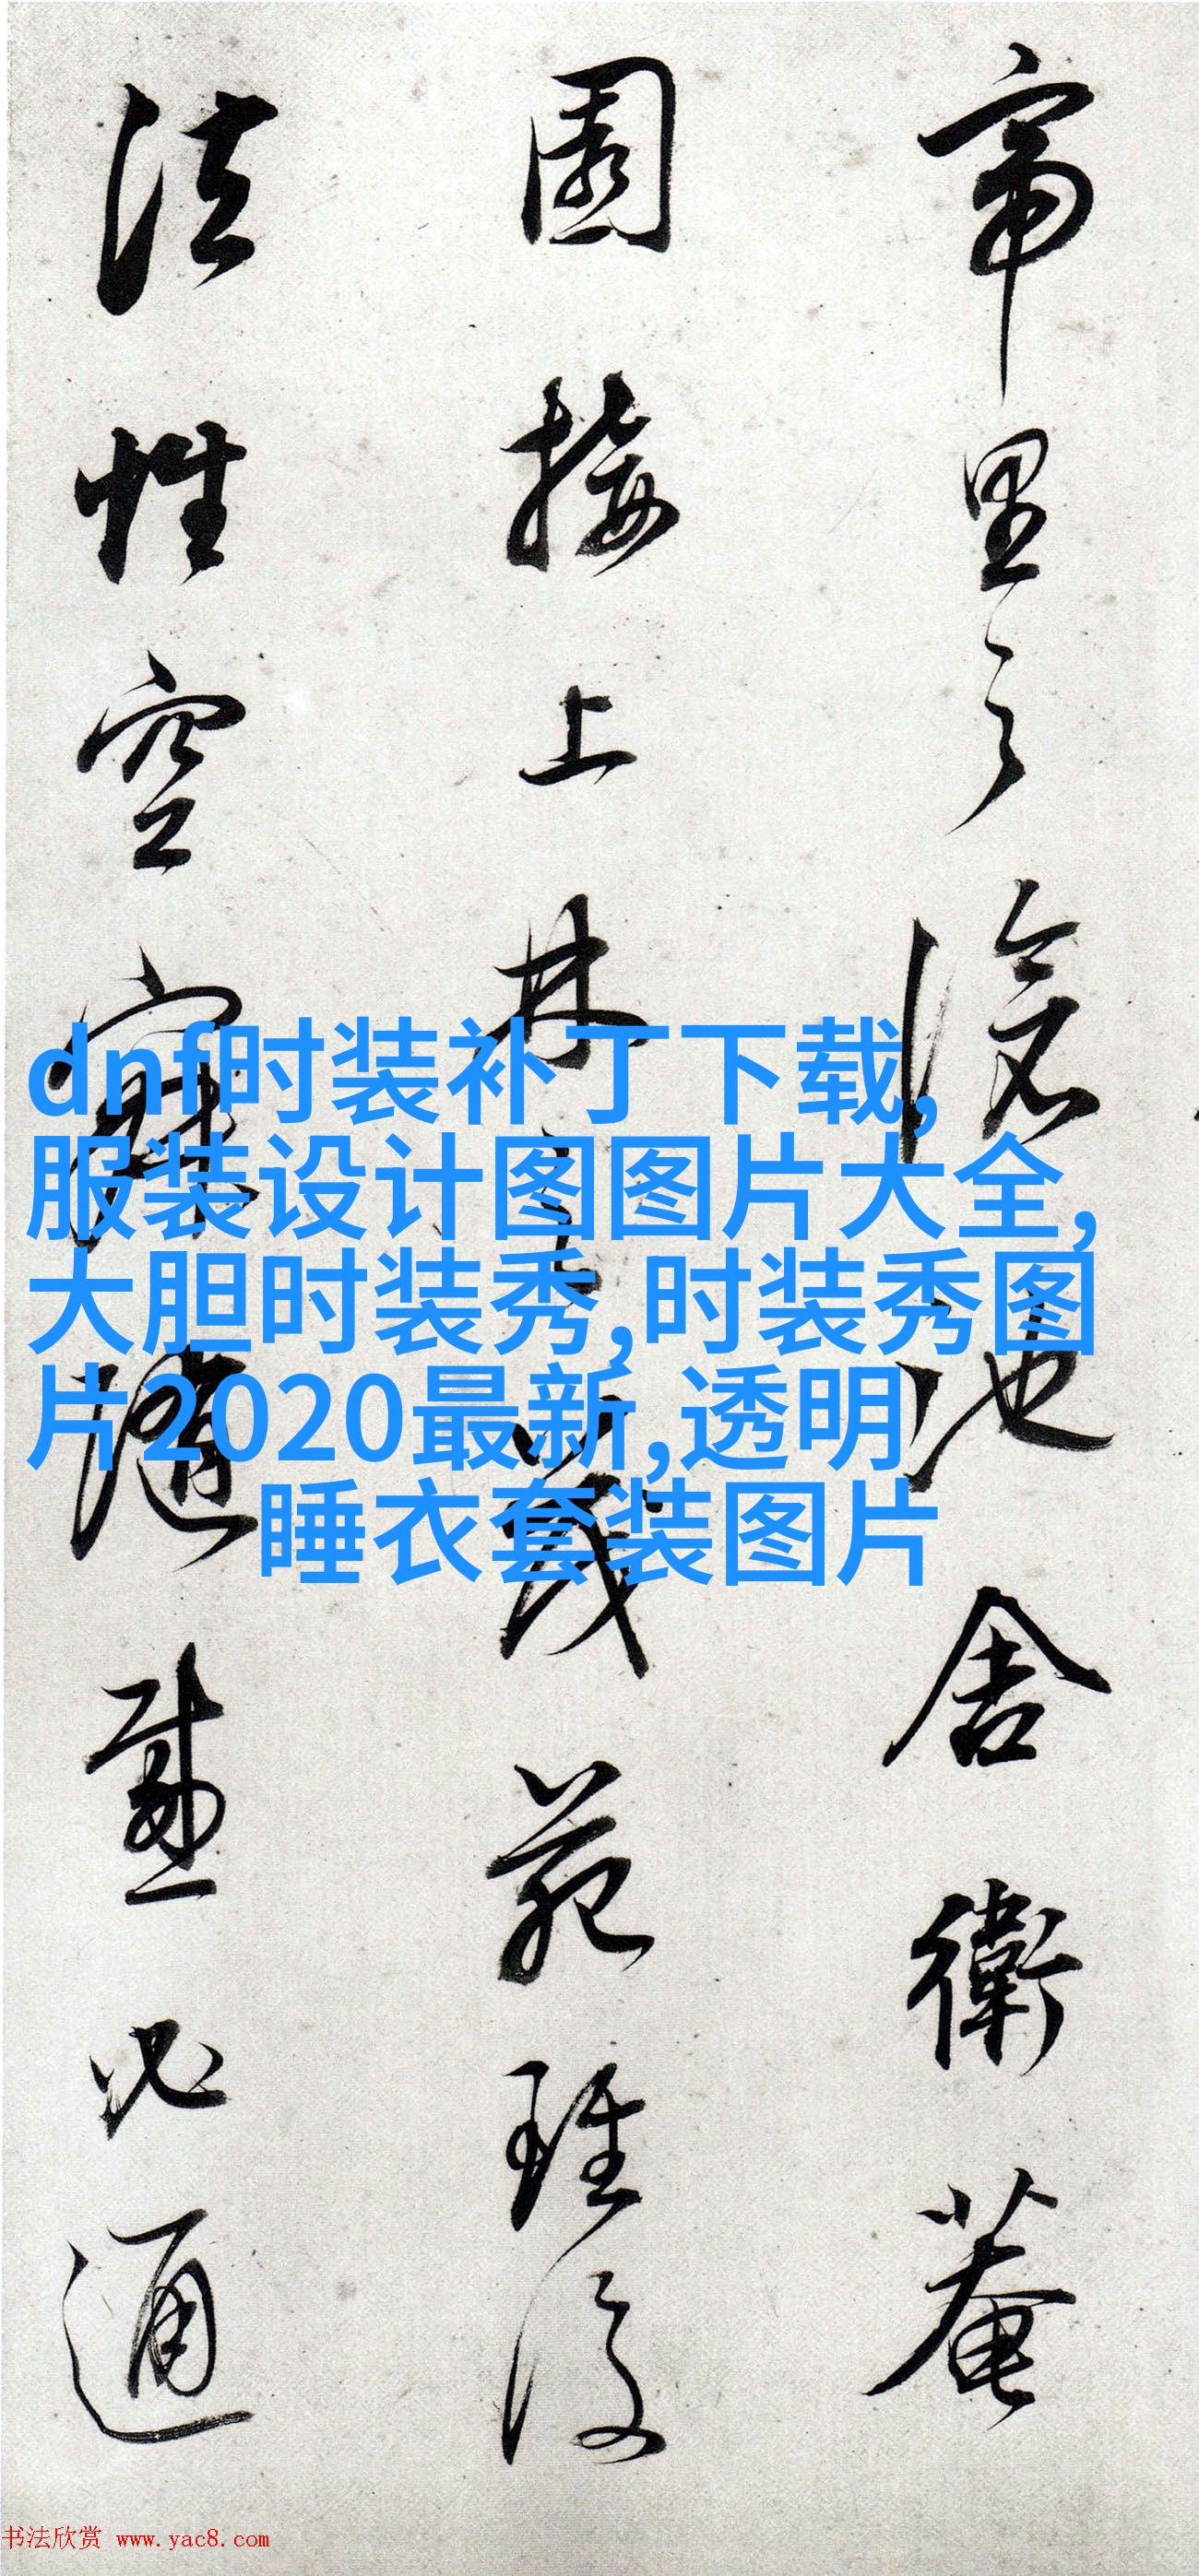 帝里之滄池舍衛菴
園接上林之茂苑雖復
法性空寂隨感必通
dnf时装补丁下载,
服装设计图图片大全,
大胆时装秀,时装秀图
片2020最新,透明
睡衣套装图片
书法欣赏 www.yac8.com